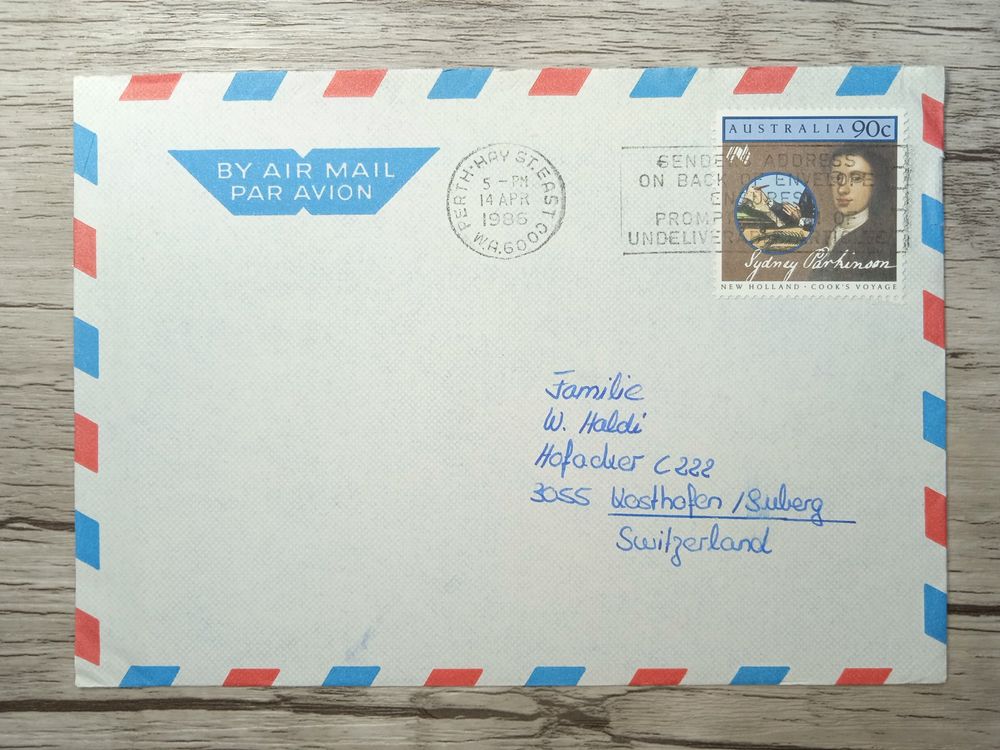 BY AIR MAIL
PAR AVION
PERTH·HAY ST. EAST
5 - PM
14 APR
1986
W.A. 6000
SENDER ADDRESS
ON BACK OF ENVELOPE
ENSURES
PROMPT OF
UNDELIVERABLE
AUSTRALIA 90c
Sydney Parkinson
NEW HOLLAND · COOK'S VOYAGE
Familie
W. Haldi
Hofacker C 222
3055 Kosthofen / Suberg
Switzerland